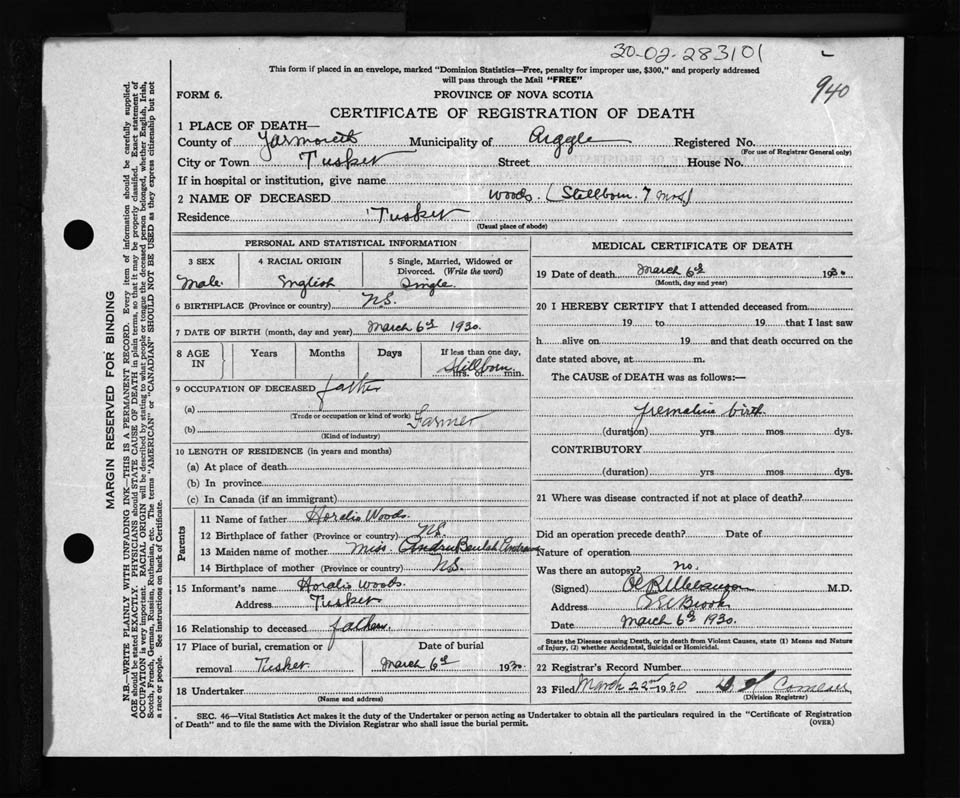 30-02-283101
940
This form if placed in an envelope, marked "Dominion Statistics—Free, penalty for improper use, $300," and properly addressed
will pass through the Mail "FREE"
FORM 6.
PROVINCE OF NOVA SCOTIA
CERTIFICATE OF REGISTRATION OF DEATH
1 PLACE OF DEATH—
County of Yarmouth Municipality of Argyle Registered No.
(For use of Registrar General only)
City or Town Tusket Street House No.
If in hospital or institution, give name
2 NAME OF DECEASED Woods. (Stillborn. 7 mos)
Residence Tusket
(Usual place of abode)
PERSONAL AND STATISTICAL INFORMATION
3 SEX 4 RACIAL ORIGIN 5 Single, Married, Widowed or
Divorced. (Write the word)
Male. English Single.
6 BIRTHPLACE (Province or country) N.S.
7 DATE OF BIRTH (month, day and year) March 6th 1930.
8 AGE IN Years Months Days If less than one day,
Stillborn
hrs. or min.
9 OCCUPATION OF DECEASED father
(a)
(Trade or occupation or kind of work) Farmer
(b)
(Kind of industry)
10 LENGTH OF RESIDENCE (in years and months)
(a) At place of death
(b) In province
(c) In Canada (if an immigrant)
Parents
11 Name of father Horatio Woods.
12 Birthplace of father (Province or country) N.S.
13 Maiden name of mother Miss. Beulah
14 Birthplace of mother (Province or country) N.S.
15 Informant's name Horatio Woods.
Address Tusket
16 Relationship to deceased father
17 Place of burial, cremation or Date of burial
removal Tusket March 6th 1930
18 Undertaker
(Name and address)
MEDICAL CERTIFICATE OF DEATH
19 Date of death March 6th 1930.
(Month, day and year)
20 I HEREBY CERTIFY that I attended deceased from
19 to 19 that I last saw
h alive on 19 and that death occurred on the
date stated above, at m.
The CAUSE of DEATH was as follows:—
premature birth
(duration) yrs mos dys.
CONTRIBUTORY
(duration) yrs mos dys.
21 Where was disease contracted if not at place of death?
Did an operation precede death? Date of
Nature of operation
Was there an autopsy? no.
(Signed) M.D.
Address Brook
Date March 6th 1930.
State the Disease causing Death, or in death from Violent Causes, state (1) Means and Nature
of Injury, (2) whether Accidental, Suicidal or Homicidal.
22 Registrar's Record Number
23 Filed March 22nd 1930 Comeau
(Division Registrar)
SEC. 46—Vital Statistics Act makes it the duty of the Undertaker or person acting as Undertaker to obtain all the particulars required in the "Certificate of Registration
of Death" and to file the same with the Division Registrar who shall issue the burial permit.
(OVER)
MARGIN RESERVED FOR BINDING
N.B.—WRITE PLAINLY WITH UNFADING INK—THIS IS A PERMANENT RECORD. Every item of information should be carefully supplied.
AGE should be stated EXACTLY. PHYSICIANS should STATE CAUSE OF DEATH in plain terms, so that it may be properly classified. Exact statement of
OCCUPATION is very important. RACIAL ORIGIN will be described by stating to what people or tongue the deceased person belonged, whether English, Irish,
Scotch, French, German, Russian, Ruthenian, etc. The terms "AMERICAN" or "CANADIAN" SHOULD NOT BE USED as they express citizenship but not
a race or people. See instructions on back of Certificate.